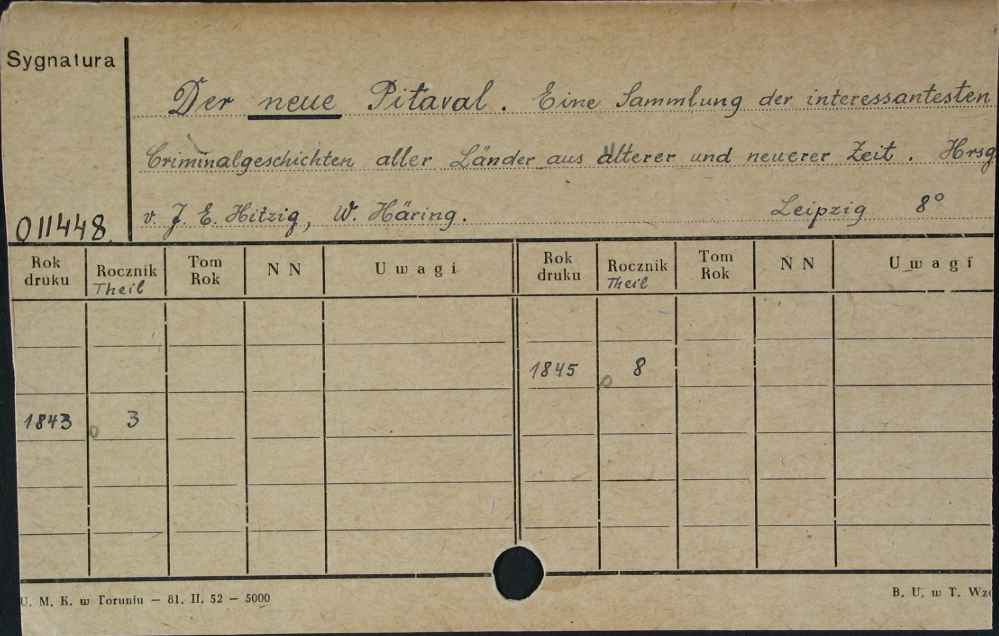 Sygnatura
Der neue Pitaval. Eine Sammlung der interessantesten
Criminalgeschichten aller Länder aus älterer und neuerer Zeit. Hrsg
v. J. E. Hitzig, W. Häring. Leipzig 8°
011448
Rok druku Rocznik Theil Tom Rok N N Uwagi Rok druku Rocznik Theil Tom Rok N N Uwagi
1845 o 8
1843 o 3
U. M. K. w Toruniu — 81. II. 52 — 5000 B. U. w T.